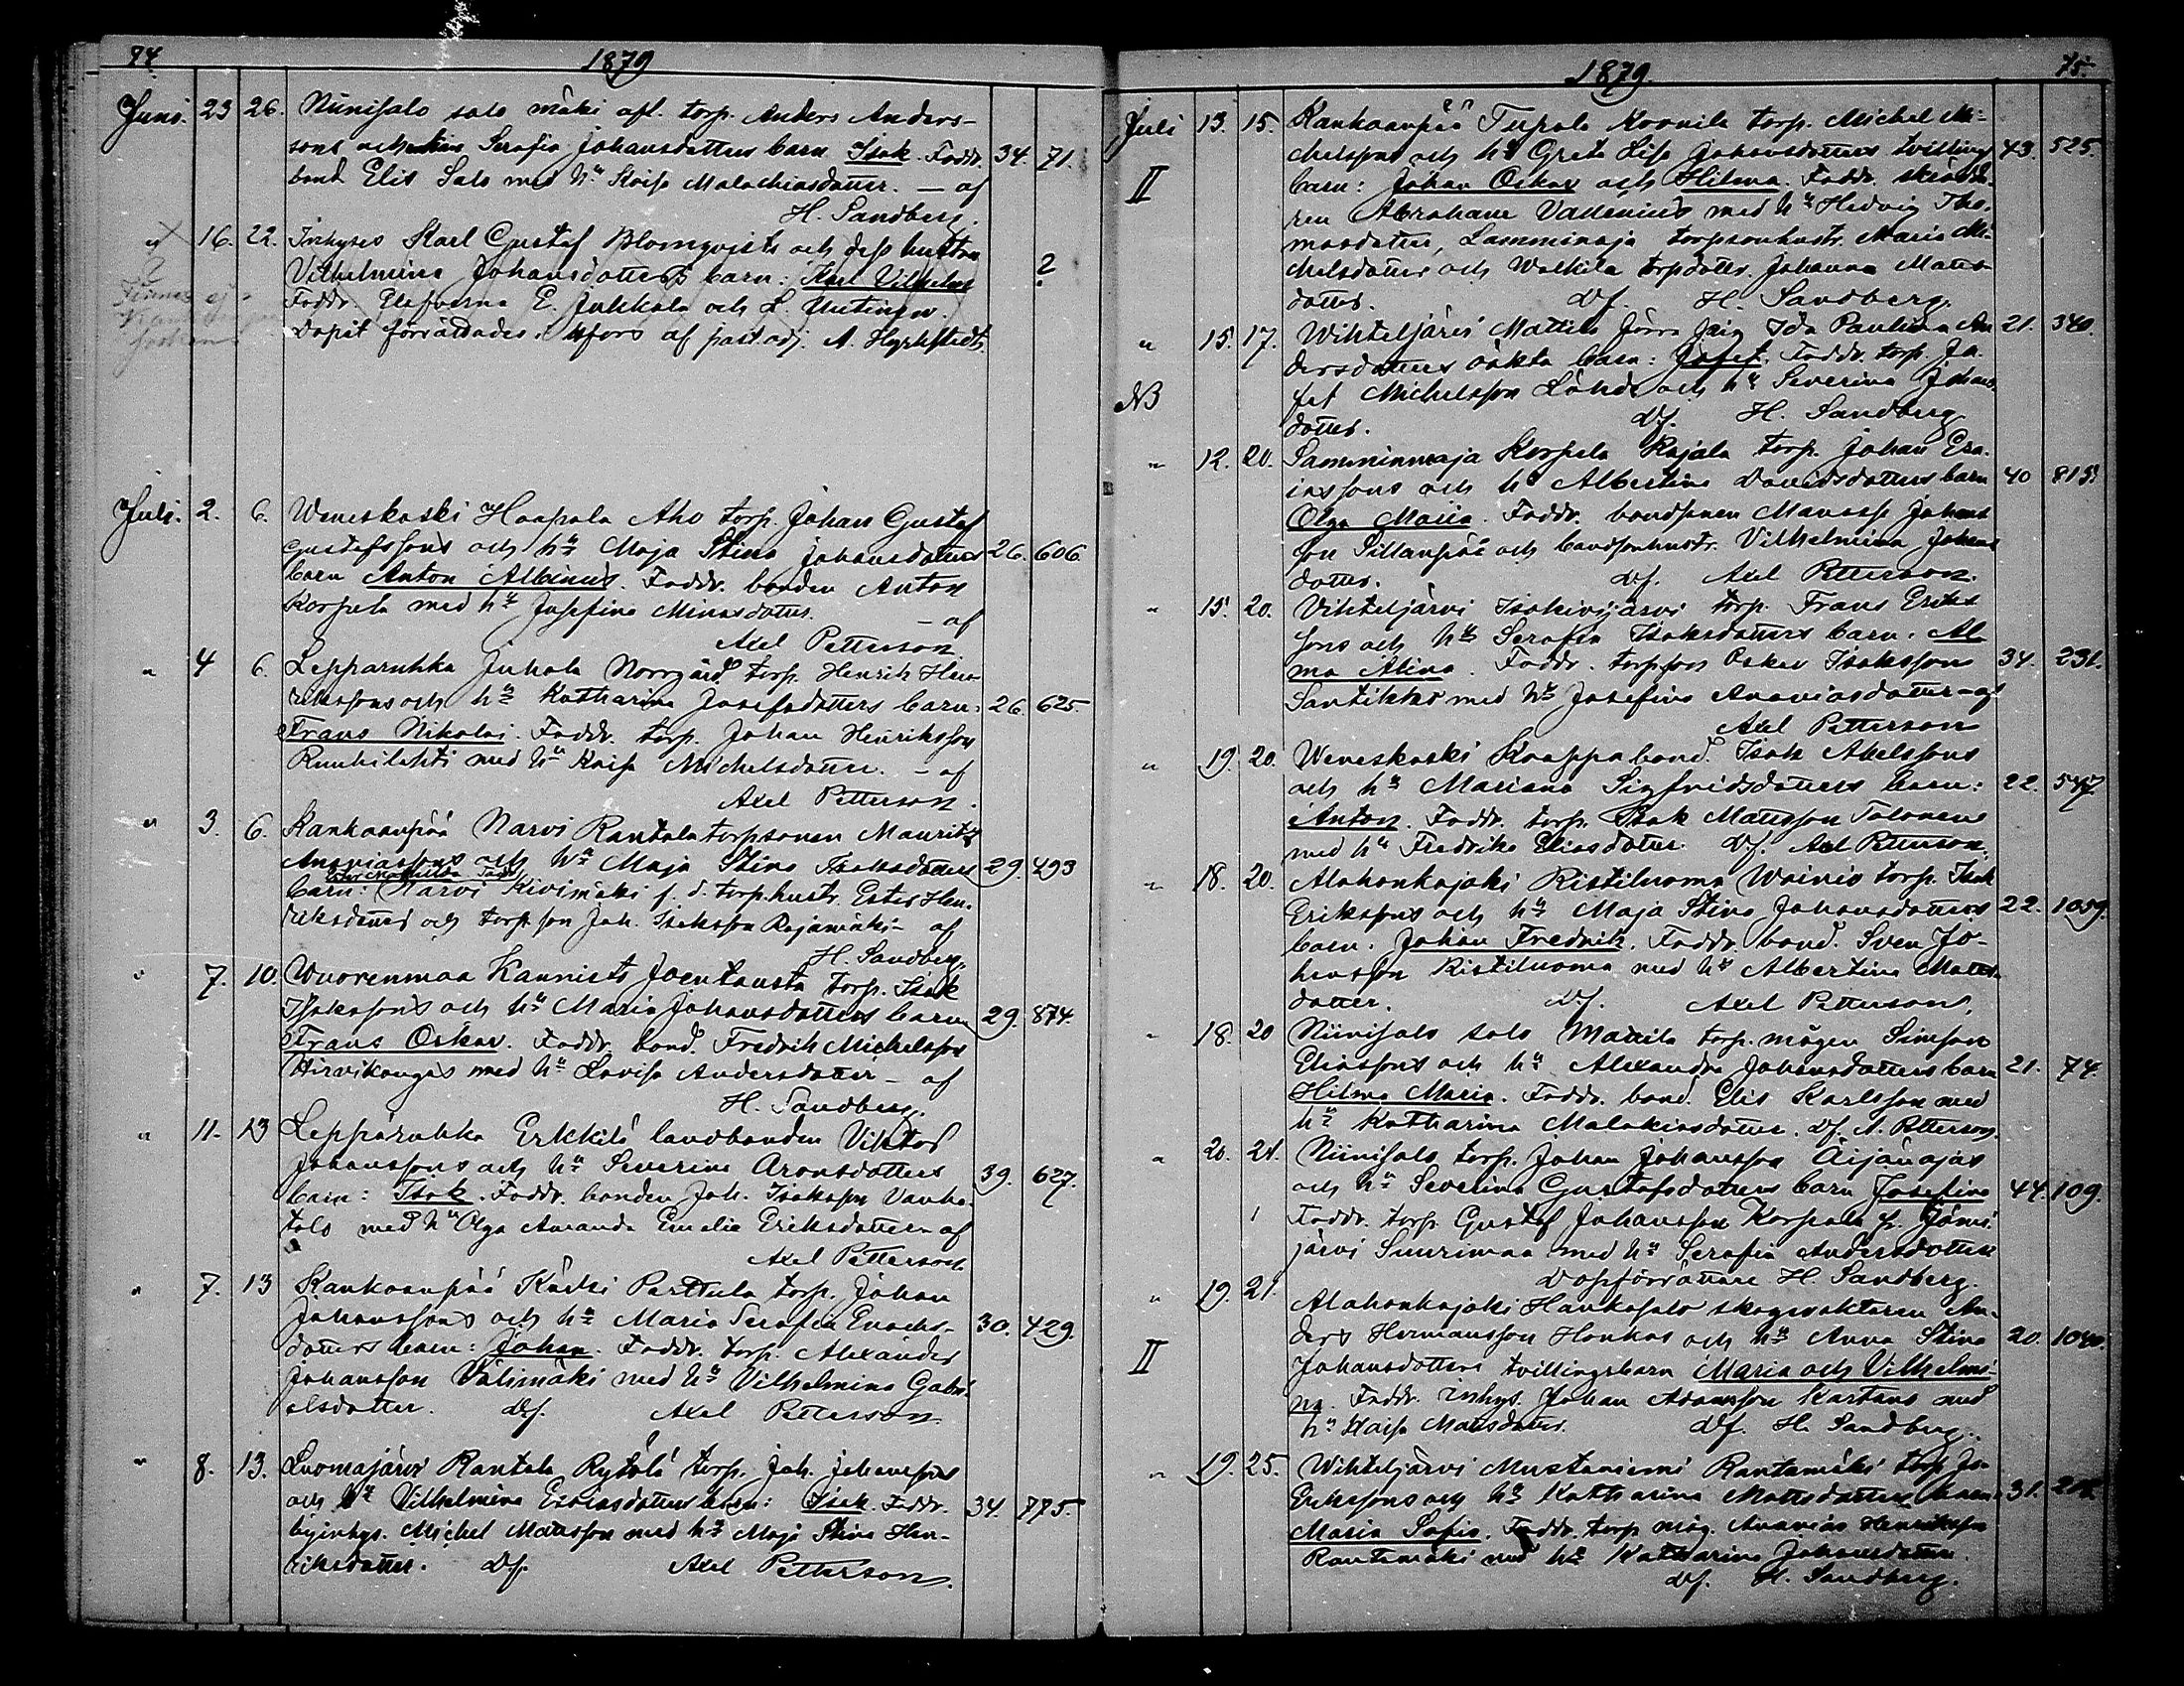 74 1879
Juni. 23 26. Niinisalo salo mäki afl. torp. Anders Anders-
sons och Serafia Johansdotters barn Isak. Faddr. 34. 71.
bond Elis Salo med hu Kaisa Malachiasdotter. — af
H. Sandberg.
16. 22. Inhyses Karl Gustaf Blomqvists och dess hustru
Vilhelmina Johansdotters barn: Karl Vilhelm ?
Faddr. E. Jukkola och L.
Dopet förrättades i af past. adj. A.
Finnes ej i
Juli. 2. 6. Weneskoski Haapala Aho torp. Johan Gustaf
Gustafssons och hu Maja Stina Johansdotters 26. 606.
barn Anton Albinus. Faddr. bonden Anton
Korpela med hu Josefina Minasdotter. — af
Axel Petterson.
" 4 6. Lepparuhka Juhala Norrgård torp. Henrik Hen-
rikssons och hu Katharina Josefsdotters barn: 26. 625.
Frans Nikolai. Faddr. torp. Johan Henriksson
Ruuhilahti med hu Kaisa Michelsdotter. — af
Axel Petterson.
" 3. 6. Kankaanpää Narvi Rantala torpsonen Maurits
Ananiassons och hu Maja Stina Isaksdotters 29. 493
Ester Mathilda Faddr.
barn: Narvi Kivimäki f. d. torp. hustr. Ester Hen-
riksdotter och torp son Joh. Isaksson Rajamäki — af
H. Sandberg.
" 7. 10. Wuorenmaa Kannisto Joentausta torp. Isak
Isakssons och hu Maria Johansdotters barn 29. 874.
Frans Oskar. Faddr. bond. Fredrik Michelsson
Hirvikangas med hu Lovisa Andersdotter — af
H. Sandberg.
" 11. 13 Leppäruhka Erkkilä landbonden Viktor
Johanssons och hu Severina Aronsdotters 39. 627.
barn: Isak. Faddr. bonden Joh. Isaksson Vanha-
talo med hu Olga Amanda Emelia Eriksdotter — af
Axel Petterson
" 7. 13 Kankaanpää Kärki Perttula torp. Johan
Johanssons och hu Maria Serafia Enochs- 30. 429.
dotters barn: Johan. Faddr. torp. Alexander
Johansson Välimäki med hu Vilhelmina Gabri-
elsdotter. Df. Axel Petterson.
" 8. 13. Luomajärvi Rantala Rytölä torp. Joh. Johanssons
och hu Vilhelmina Esaiasdotters barn: Isak. Faddr. 34. 775.
byinhys. Michel Mattsson med hu Maja Stina Hen-
riksdotter. Df. Axel Petterson.
1879. 75.
Juli 13. 15. Kankaanpää Tupala Koonila torp. Michel Mi-
chelssons och hu Greta Lisa Johansdotters tvilling 43. 525.
II barn: Johan Oskar och Hilma. Faddr. skrädda-
ren Abraham Vallenius med hu Hedvig Tho-
masdotter, Lamminaja torpsonhustr. Maria Mi-
chelsdotter och Walkila torpdotter. Johanna Matts-
dotter. Df. H. Sandberg.
" 15. 17. Wihteljärvi Mattila Jörra pig Ida Paulina An- 21. 340.
dersdotters oäkta barn: Josef. Faddr. torp. Jo-
NB sef Michelsson Lähde och hu Severina Johans-
dotter. Df. H. Sandberg
" 12. 20. Lamminmaja Korpela Rajala torp. Johan Esa-
iassons och hu Albertina Davidsdotters barn 40 815.
Olga Maria. Faddr. bondsonen Manasse Johans-
son Sillanpää och bondsonhustr. Vilhelmina Johans-
dotter. Df. Axel Petterson.
" 15. 20. Vihteljärvi Isokivijärvi torp. Frans Eriks-
sons och hu Serafia Isaksdotters barn. Al-
ma Alina. Faddr. torpson Oskar Isaksson 34. 231.
Santikko med hu Josefina Ananiasdotter — af
Axel Petterson
" 19. 20. Weneskoski Knaappa bond. Isak Axelssons
och hu Mariana Sigfridsdotters barn: 22. 547
Anton. Faddr. torp. Isak Mattsson Talonen
med hu Fredrika Eliasdotter. Df. Axel Petterson.
" 18. 20. Alahonkajoki Ristiluoma Wainio torp. Isak
Erikssons och hu Maja Stina Johansdotters 22. 1059.
barn. Johan Fredrik. Faddr. bond. Sven Jo-
hansson Ristiluoma med hu Albertina Matts-
dotter. Df. Axel Petterson.
" 18. 20 Niinisalo salo Mattila torp. mågen Simson
Eliassons och hu Alexandra Johansdotters barn 21. 74.
Hilma Maria. Faddr. bond. Elis Karlsson med
hu Katharina Malakiasdotter. Df. A. Petterson.
" 20. 21. Niinisalo torp. Johan Johansson Äijänojas
och hu Severina Gustafsdotters barn Josefina 44. 109.
Faddr. torp. Gustaf Johansson Korpela fr. Jämi-
järvi Suurimaa med hu Serafia Andersdotter
Dopförrättare H. Sandberg.
" 19. 21. Alahonkajoki Hankasalo skogvaktaren An-
ders Hermansson Honkas och hu Anna Stina 20. 1040.
II Johansdotters tvillingsbarn Maria och Vilhelmi-
na. Faddr. inhys. Johan Adamsson Kartano med
hu Kaisa Mattsdotter. Df. H. Sandberg.
" 19. 25. Wihteljärvi Mustaniemi Rantamäki torp. Jo-
Erikssons och hu Katharina Mattsdotters barn 31.
Maria Sofia. Faddr. torp måg. Ananias Henriksson
Rantamäki med hu Katharina Johansdotter.
Df. H. Sandberg.